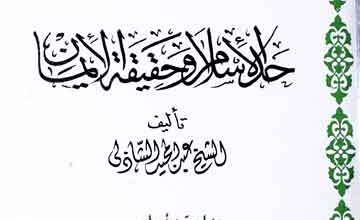 حد الإسلام وحقيقة الإيمان
تأليف
الشيخ عبد المجيد الشاذلي